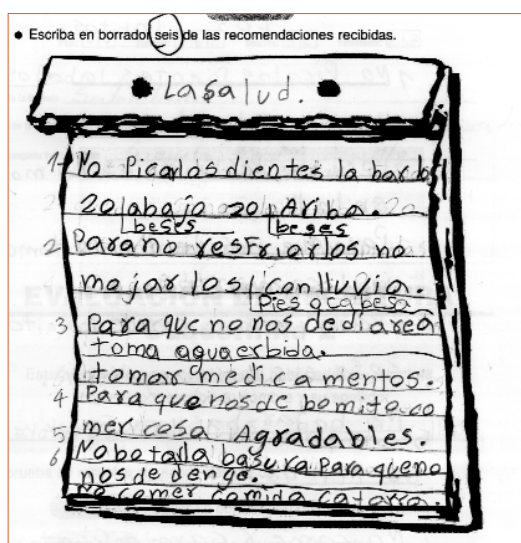 • Escriba en borrador seis de las recomendaciones recibidas.
La salud.
1- No Picarlos dientes la barba
20 abajo 20 Ariba.
beses beses
2- Para no resfriarlos no
mojarlosiconlluvia.
Pies o cabesa
3 Para que no nos de diarea
toma aguaerbida.
tomar medicamentos.
4 Para que nos de bomito co
5 mer cosa Agradables.
6 No botalla basura Para queno
nos de denge.
No comer comida catarro.